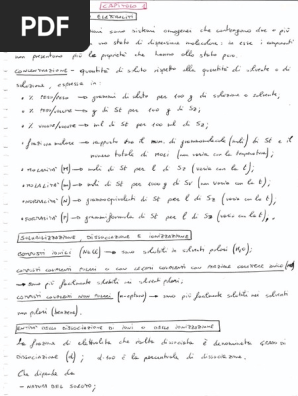 PDF
CAPITOLO 1
ELETTROLITI
sono sistemi omogenei che contengono due o più
in uno stato di dispersione molecolare; in esse i componenti
non presentano più le proprietà che hanno allo stato puro.
CONCENTRAZIONE → quantità di soluto rispetto alla quantità di solvente o di
soluzione, espressa in:
• % PESO/PESO → grammi di soluto per 100 g di soluzione o solvente,
• % PESO/VOLUME → g di St per 100 ml di Sz;
• % VOLUME/VOLUME → ml di St per 100 ml di Sz;
• FRAZIONE MOLARE → rapporto tra il num. di grammomolecole (moli) di St e il
numero totale di moli (non varia con la temperatura);
• MOLARITÀ (M) → moli di St per l di Sz (varia con la t);
• MOLALITÀ (m) → moli di St per 1000 g di Sv (non varia con la t);
• NORMALITÀ (N) → grammoequivalenti di St per l di Sz (varia con la t),
• FORMALITÀ (F) → grammiformula di St per l di Sz (varia con la t).
SOLUBILIZZAZIONE, DISSOCIAZIONE E IONIZZAZIONE
COMPOSTI IONICI (NaCl) → sono solubili in solventi polari (H2O);
COMPOSTI COVALENTI POLARI O CON LEGAMI COVALENTI CON
→ sono più facilmente solubili nei solventi polari;
COMPOSTI COVALENTI NON POLARI → sono più facilmente solubili nei solventi
non polari (benzene).
ENTITÀ DELLA DISSOCIAZIONE DI IONI O DELLA IONIZZAZIONE
La frazione di elettrolita che risulta dissociata è denominata GRADO DI
DISSOCIAZIONE (α); α·100 è la percentuale di dissociazione.
Che dipende da:
- NATURA DEL SOLUTO;